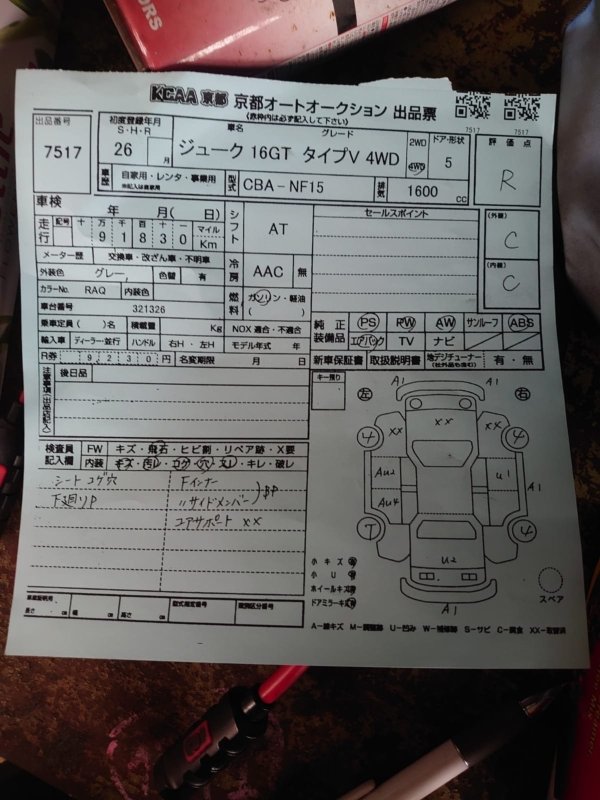 ORS
KCAA 京都 京都オートオークション 出品票
(赤枠内は必ず記入して下さい)
7517 7517
出品番号 初度登録年月 S・H・R 車名 グレード 2WD ドア・形状 評価点
7517 26 月 ジューク 16GT タイプV 4WD 4WD 5 R
車歴 自家用・レンタ・事業用 ※記入は自家用 型式 CBA-NF15 排気 1600 cc
車検 年 月( 日) シフト AT セールスポイント (外装) C
走行 記号 十 万 千 百 十 マイル
9 1 8 3 0 Km
メーター歴 交換車・改ざん車・不明車 冷房 AAC 無 (内装) C
外装色 グレー 色替 有
カラーNo. RAQ 内装色 燃料 ガソリン・軽油 ( )
車台番号 321326
乗車定員 ( )名 積載量 Kg NOX 適合・不適合 純正装備品 PS PW AW サンルーフ ABS
輸入車 ディーラー・並行 ハンドル 右H・左H モデル年式 年 エアバック TV ナビ
R券 9,230円 名変期限 月 日 新車保証書 取扱説明書 地デジチューナー (社外品も含む) 有・無
注意事項(出品店記入) 後日品 キー預り
左 右
検査員記入欄 FW キズ・飛石・ヒビ割・リペア跡・X要
内装 キズ・汚レ・コゲ・穴・スレ・キレ・破レ
シート コゲ穴 Fインナー
下廻りP 〃サイドメンバー BP
コアサポート XX
A1 A1
XX XX XX
4 4
Au2 U1 A1
Au4
7 4
U2
A1
小キズ 有
小U 有
ホイールキズ 有
ドアミラーキズ 有
スペア
車庫証明用 長さ cm 幅 cm 高さ cm 型式指定番号 類別区分番号
A-線キズ M-調整跡 U-凹み W-補修跡 S-サビ C-腐食 XX-取替済